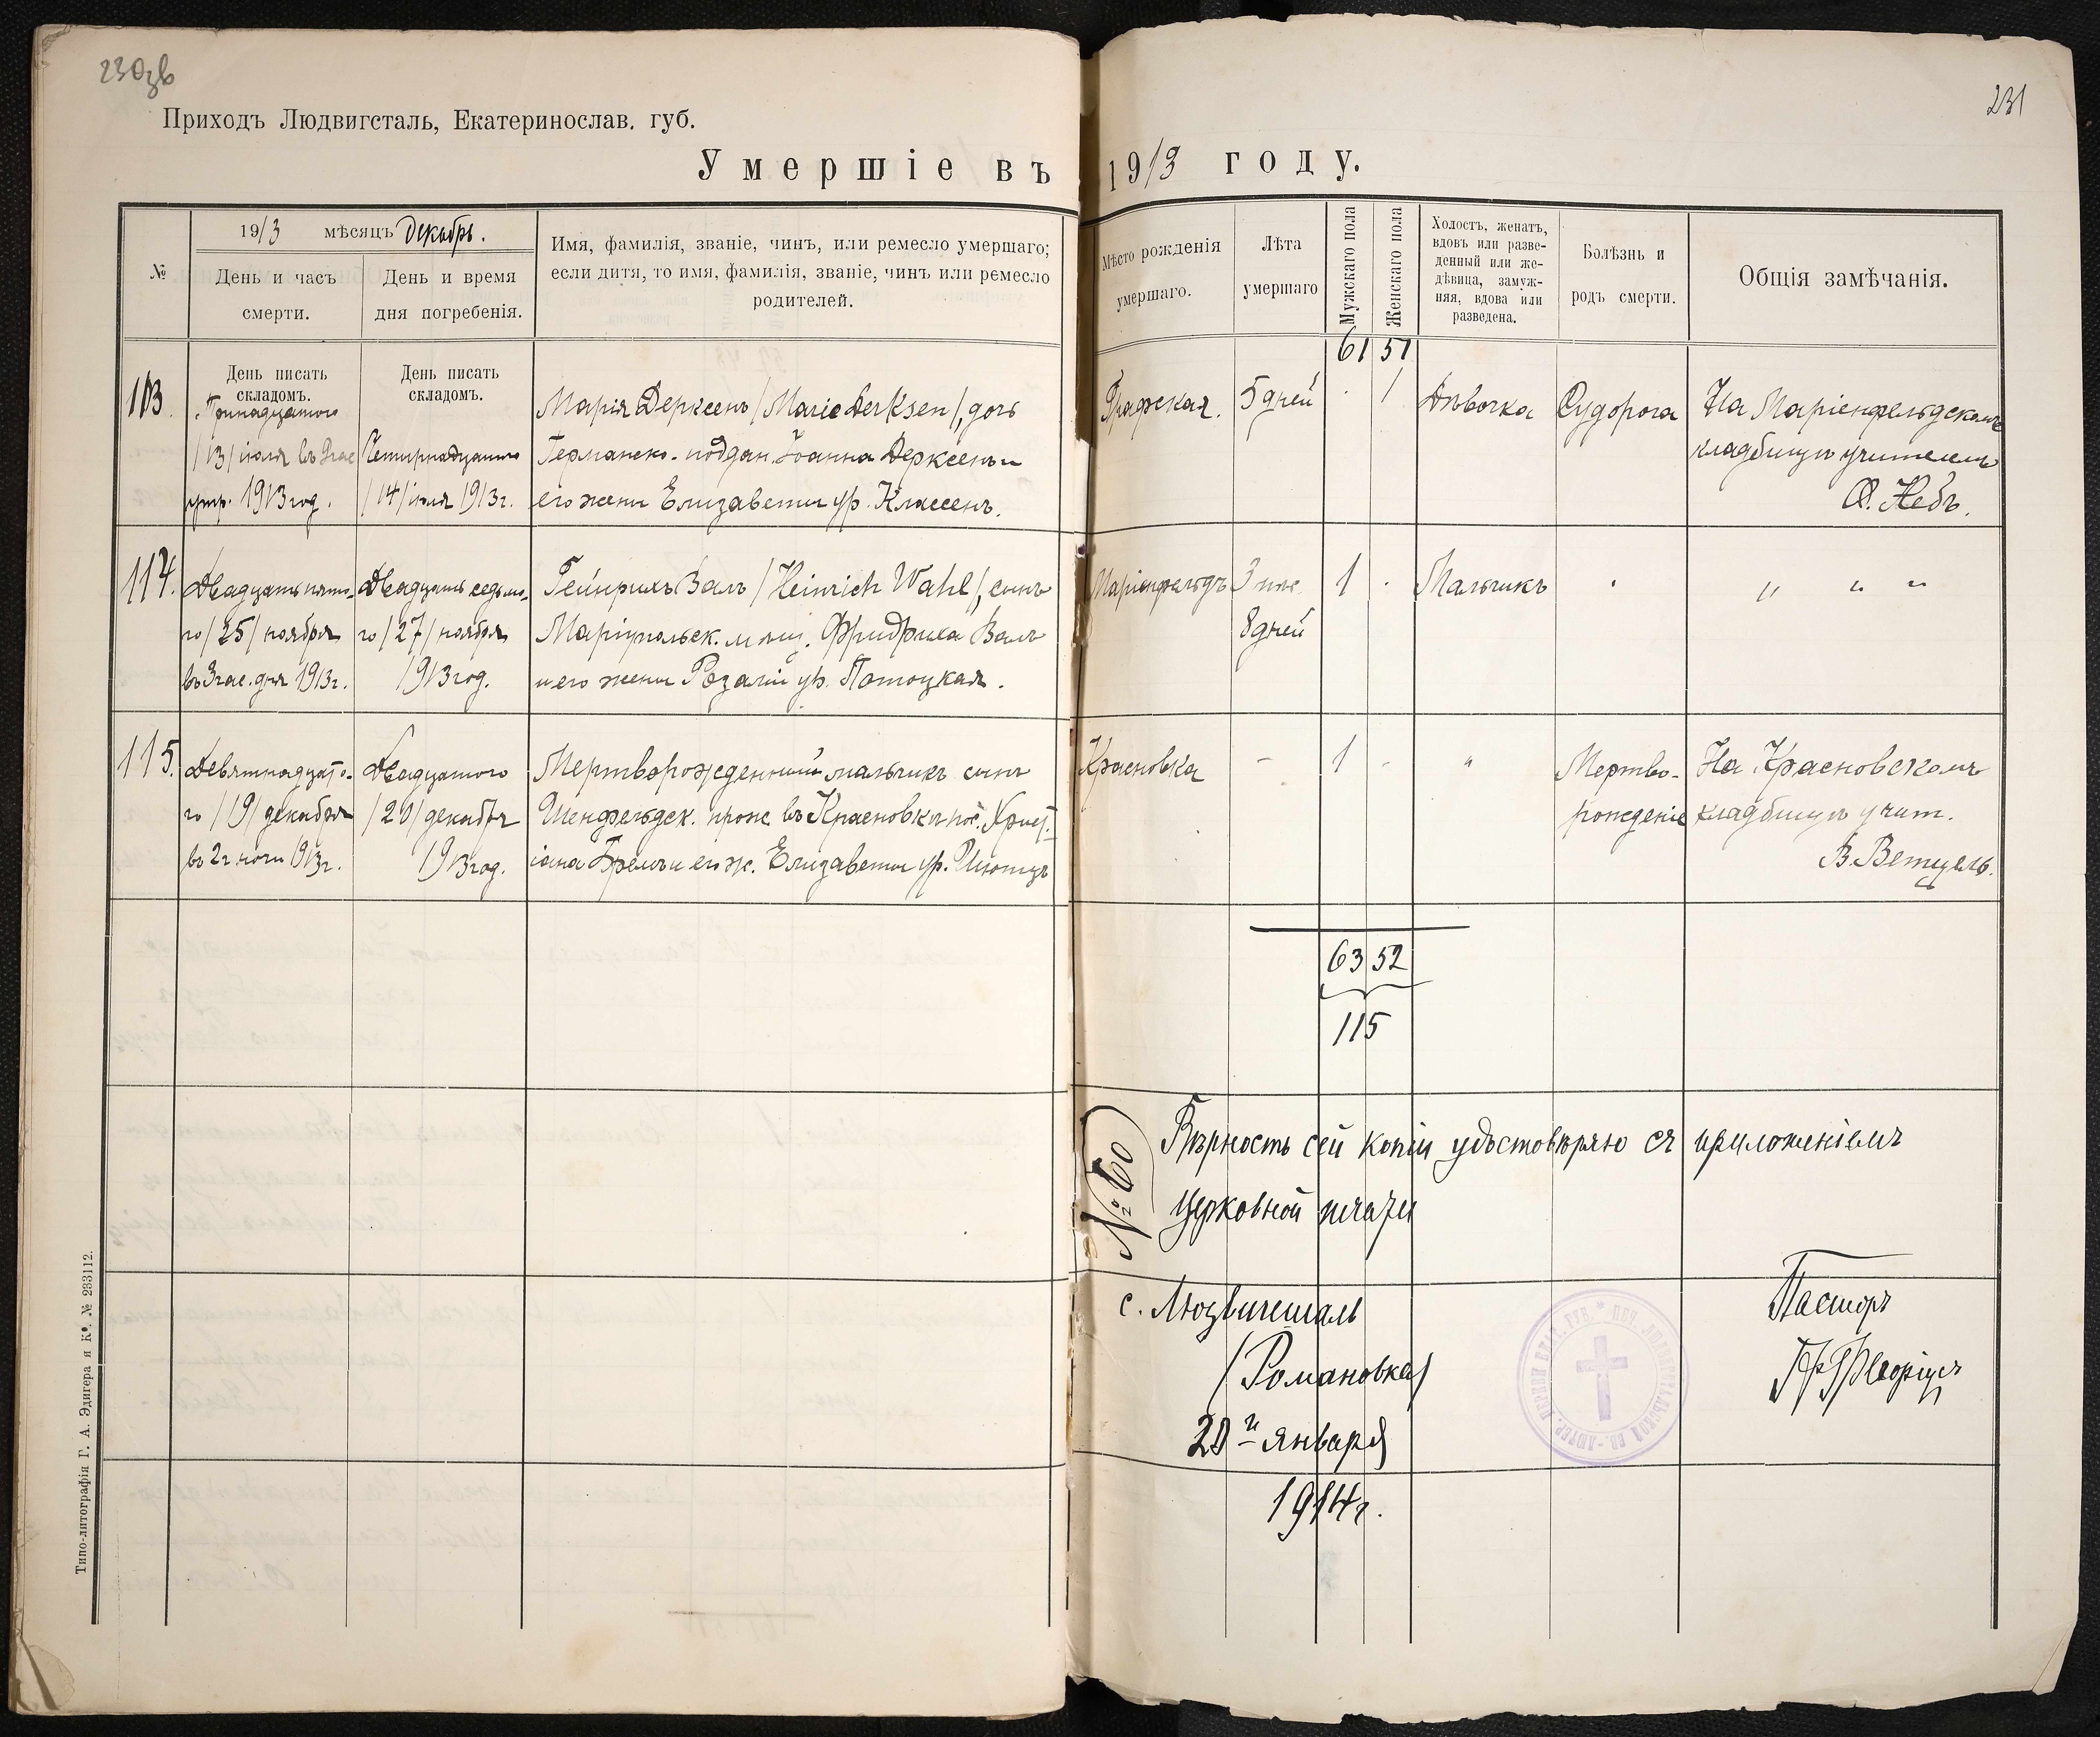 230зв
231
Приходъ Людвигсталь, Екатеринослав. губ.
Умершіе въ 1913 году.
№
1913 мѣсяцъ декабрь.
День и часъ
смерти.
День и время
дня погребенія.
Имя, фамилія, званіе, чинъ, или ремесло умершаго;
если дитя, то имя, фамилія, званіе, чинъ или ремесло
родителей.
Мѣсто рожденія
умершаго.
Лѣта
умершаго
Мужскаго пола
Женскаго пола
Холостъ, женатъ,
вдовъ или разве-
денный или же-
дѣвица, замуж-
няя, вдова или
разведена.
Болѣзнь и
родъ смерти.
Общія замѣчанія.
61 51
113.
День писать
складомъ.
Тринадцатого
/13/ іюля въ 9 час
утр. 1913 год.
День писать
складомъ.
Четырнадцатого
/14/ іюля 1913 г.
Марія Дерксенъ /Marie Derksen/, дочь
Германско-поддан. Іоанна Дерксенъ и
его жены Елизаветы ур. Классенъ.
Графская.
5 дней
. 1
Дѣвочка
Судорога
На Маріенфельдскомъ
кладбищѣ учителемъ
Ф. Небъ.
114.
Двадцать пято-
го /25/ ноября
въ 3 час. дня 1913 г.
Двадцать седьмо-
го /27/ ноября
1913 год.
Гейнрихъ Валь /Heinrich Wahl/, сынъ
Маріупольск. мѣщ. Фридриха Валь
и его жены Розаліи ур. Потоцкая.
Маріенфельдъ
8 дней
1 .
Мальчикъ
" " "
115.
Девятнадцато-
го /19/ декабря
въ 2 г ночи 1913 г.
Двадцатого
/20/ декабря
1913 год.
Мертворожденный мальчикъ сынъ
Шенфельдск. прож. въ Красновкѣ пос. Христ-
іана Бремъ и его ж. Елизаветы ур.
Красновка
-
1 -
"
Мертво-
рожденіе
На Красновскомъ
кладбищѣ учит.
В. Ветцель.
63 52
115
№ 60
Вѣрность сей копіи удостовѣряю съ приложеніемъ
церковной печати
с. Людвигсталь
/Романовка/
20го января
1914 г.
Пасторъ
Типо-литографія Г. А. Эдигера и Кº. № 233112.